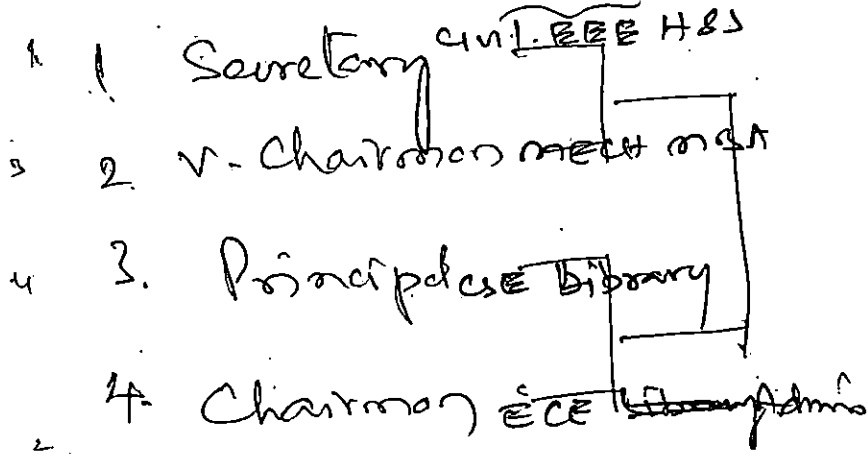 1 1. Secretary Civil. EEE H&S
3 2. V. Chairman MECH MBA
4 3. Principal CSE Library
4. Chairman ECE Library Admin
2